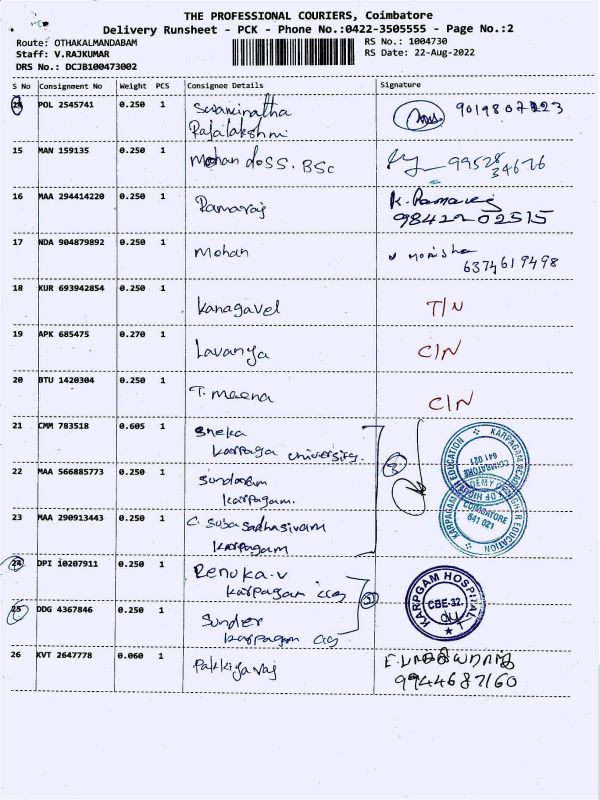 THE PROFESSIONAL COURIERS, Coimbatore
Delivery Runsheet - PCK - Phone No.:0422-3505555 - Page No.:2
Route: OTHAKALMANDABAM
RS No.: 1004730
Staff: V.RAJKUMAR
RS Date: 22-Aug-2022
DRS No.: DCJB100473002
S No Consignment No Weight PCS Consignee Details Signature
POL 2545741 0.250 1 Swaminatha
Rajalakshmi
15 MAN 159135 0.250 1 Mohan doss. BSc
99528
34676
16 MAA 294414220 0.250 1 Ramaraj K. Ramaraj
98422 02515
17 NDA 904879892 0.250 1 Mohan
6374619498
18 KUR 693942854 0.250 1 Kanagavel T/N
19 APK 685475 0.270 1 Lavanya C/N
20 BTU 1420304 0.250 1 T. Meena C/N
21 CMM 783518 0.605 1 Sneka
Karpaga University.
22 MAA 566885773 0.250 1 Sundaram
Karpagam.
23 MAA 290913443 0.250 1 C. Susa Sadhasivam
Karpagam
KARPAGAM ACADEMY OF HIGHER EDUCATION
COIMBATORE
641 021
KARPAGAM ACADEMY OF HIGHER EDUCATION
COIMBATORE
641 021
24 DPI 10207911 0.250 1 Renuka.v
Karpagam
25 DDG 4367846 0.250 1 Sunder
Karpagam
KARPGAM HOSPITAL
CBE-32
26 KVT 2647778 0.060 1 Pakkiyaraj
9944687160